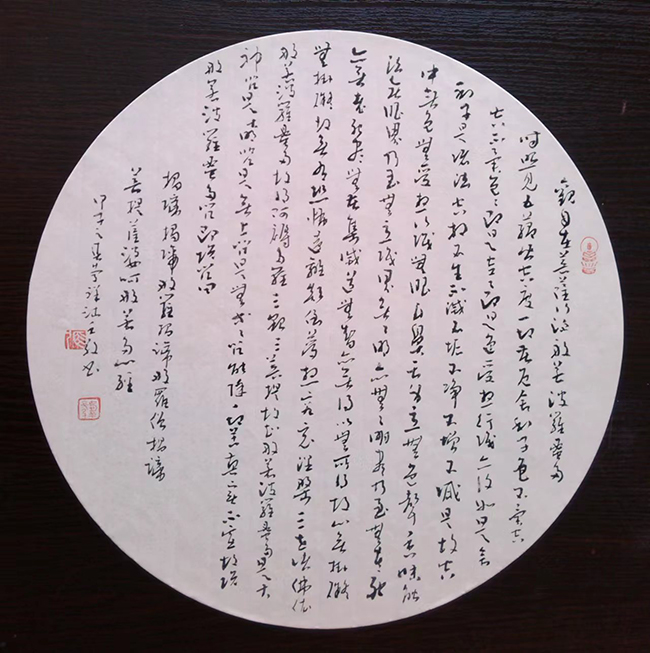 觀自在菩薩行深般若波羅蜜多
時照見五蘊皆空度一切苦厄舍利子色不異空
空不異色色即是空空即是色受想行識亦復如是舍
利子是諸法空相不生不滅不垢不淨不增不減是故空
中無色無受想行識無眼耳鼻舌身意無色聲香味觸
法無眼界乃至無意識界無無明亦無無明盡乃至無老死
亦無老死盡無苦集滅道無智亦無得以無所得故心無掛礙
無掛礙故無有恐怖遠離顛倒夢想究竟涅槃三世諸佛依
般若波羅蜜多故得阿耨多羅三藐三菩提故知般若波羅蜜多是大
神咒是大明咒是無上咒是無等等咒能除一切苦真實不虛故說
般若波羅蜜多咒即說咒曰
揭諦揭諦般羅揭諦般羅僧揭諦
菩提薩婆呵般若多心經
甲午之夏書